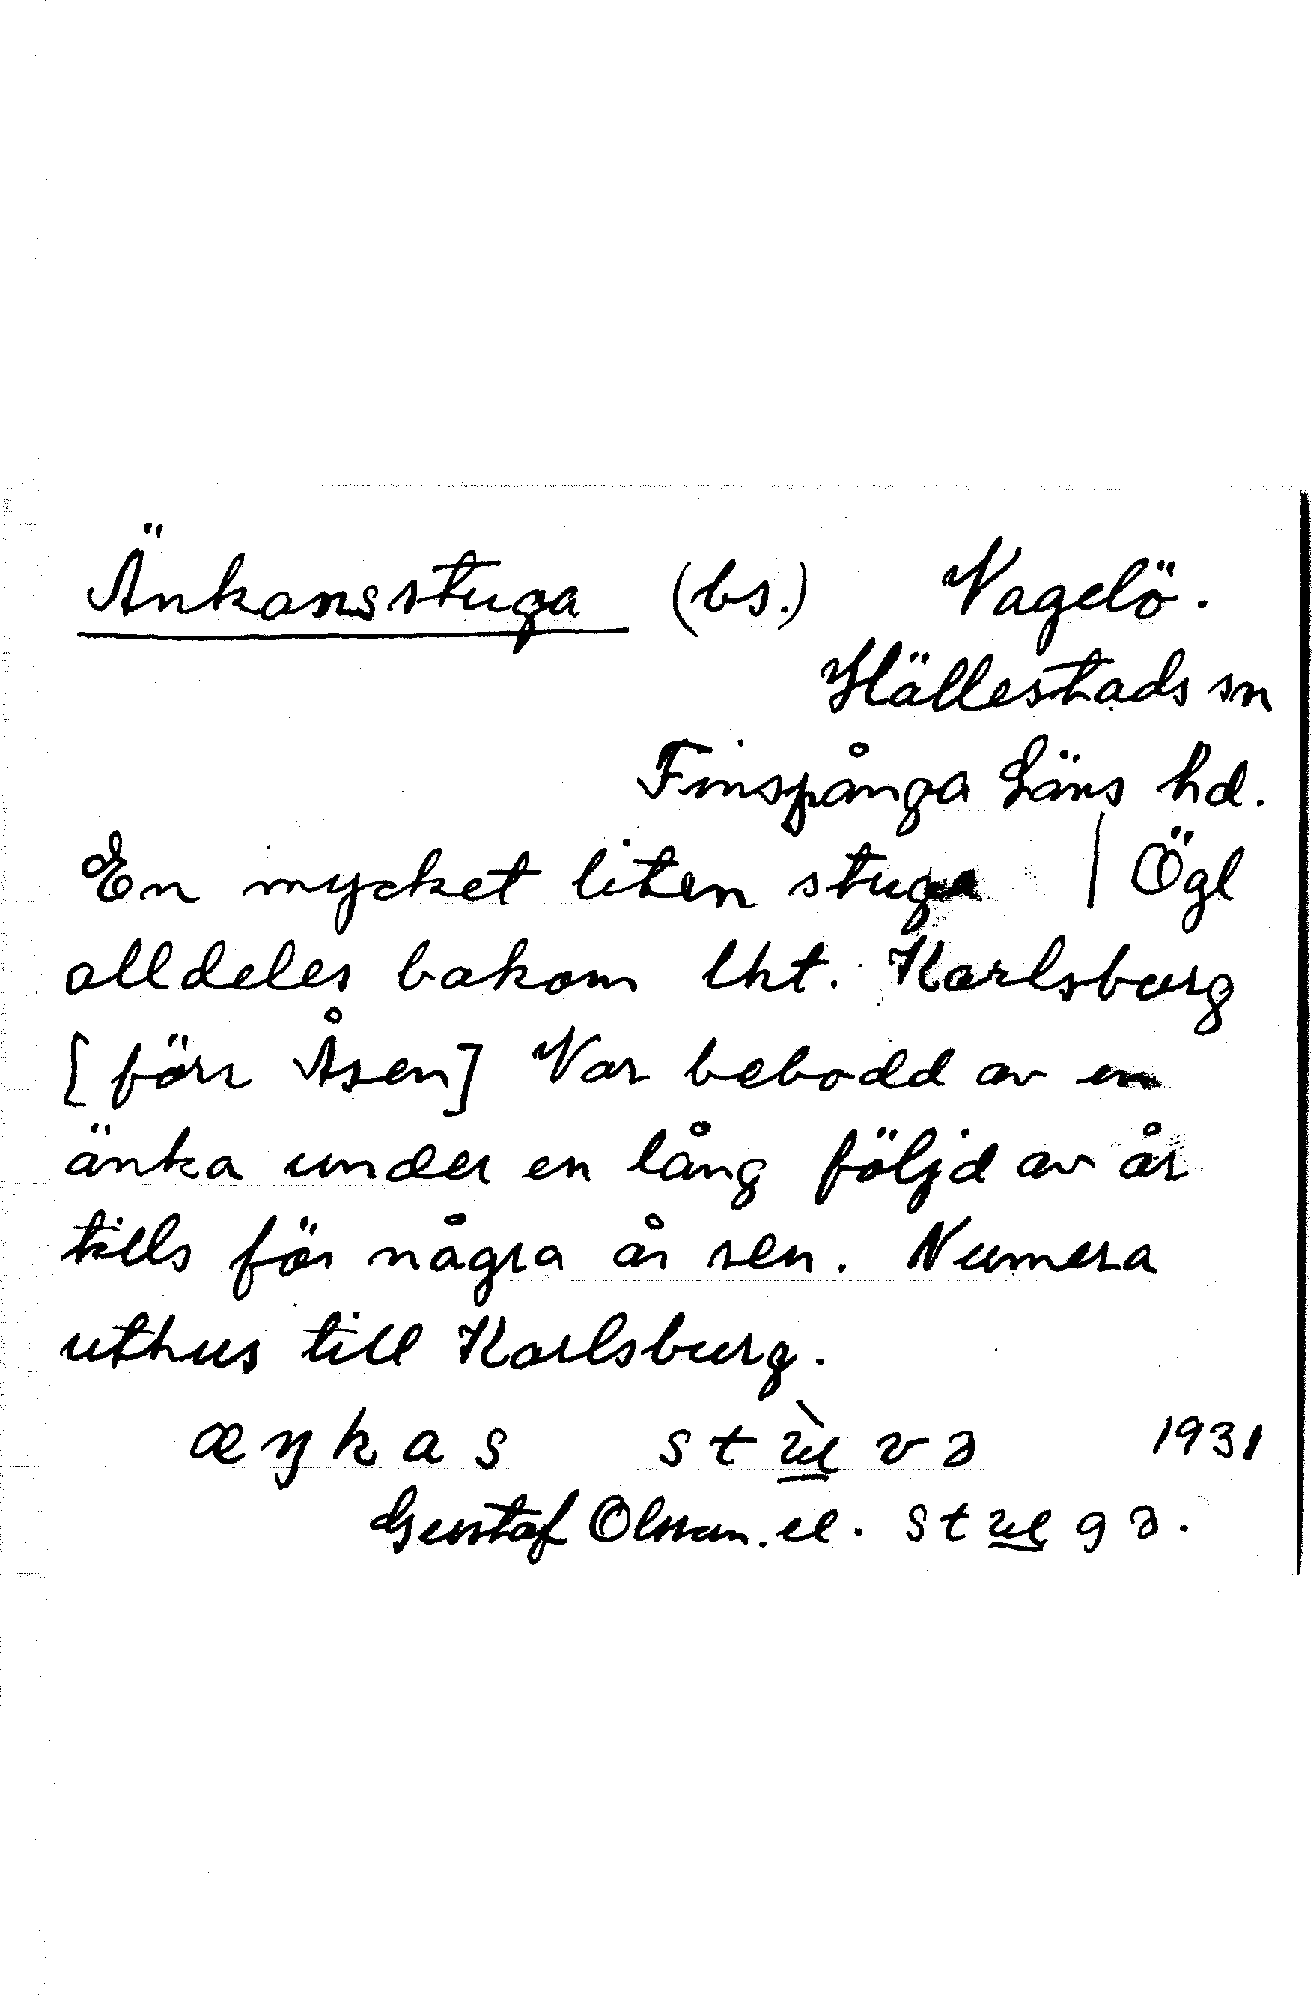 Änkansstuga (bs.) Vagelö.
Hällestads sn
Finspånga Läns hd.
En mycket liten stuga | Ögl
alldeles bakom lht. Karlsburg
[förr Åsen] Var bebodd av en
änka under en lång följd av år
tills för några år sen. Numera
uthus till Karlsburg.
æŋkas stùvə 1931
Gustaf Olsson. el. stugə.